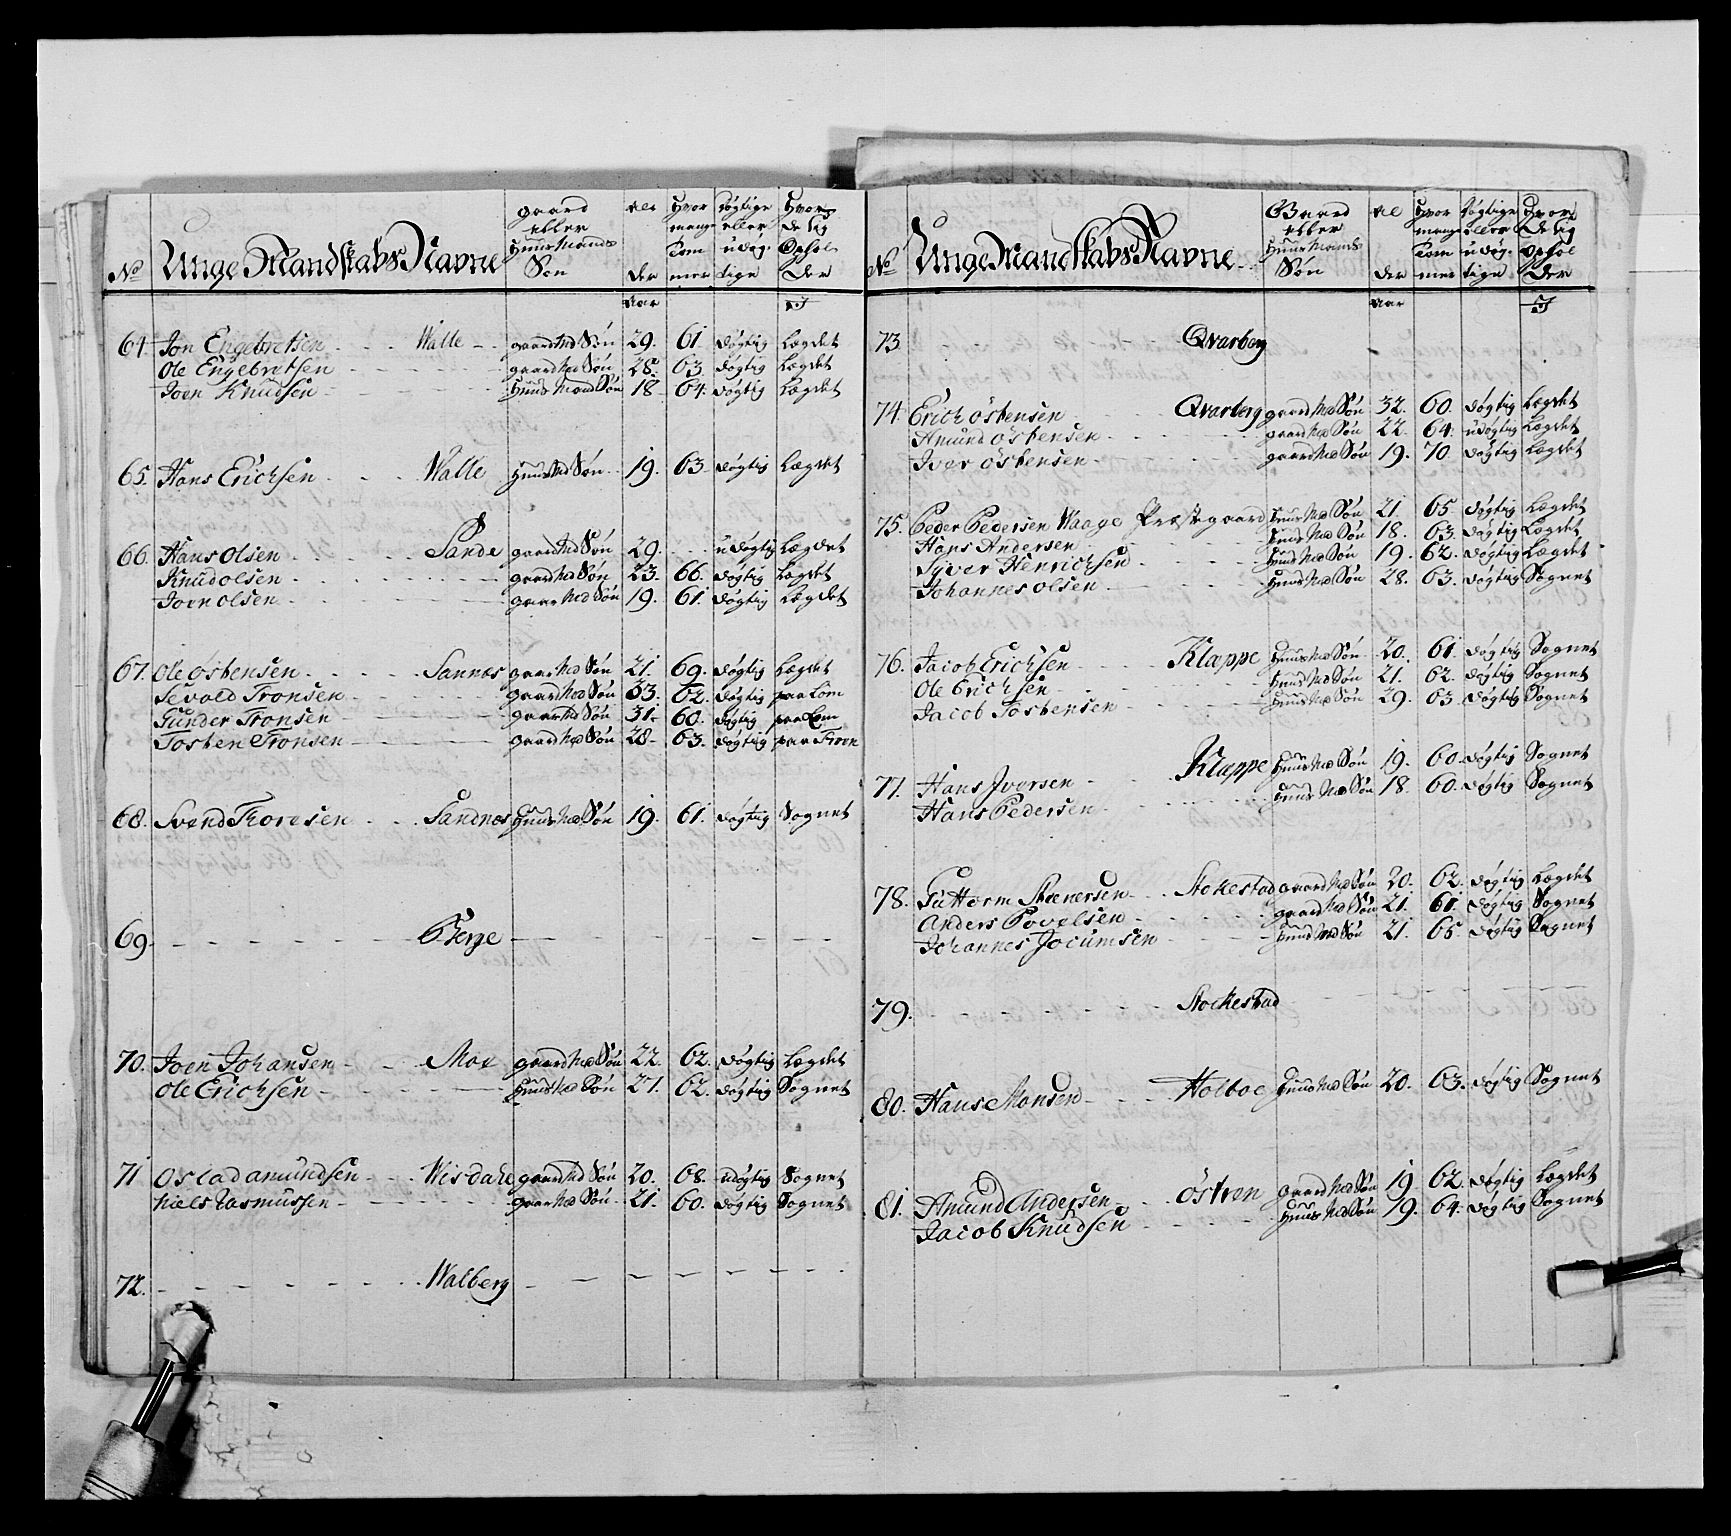 No Unge Mandskabs Navne gaard eller Huusmands Søn Alder Hvor mange Tommer døgtige eller udøgtige Hvor de sig Opholder
Aar I
64. Jon Engebretsen Walle gaardmd Søn 29. 61. døgtig Lægdet
Ole Engebretsen gaardmd Søn 28. 63. døgtig Lægdet
Joen Knudsen Huusmand Søn 18. 64. døgtig Lægdet
65. Hans Erichsen Walle Huusmd Søn 19. 63. døgtig Lægdet
66. Hans Olsen Sande gaardmd Søn 29. udøgtig Lægdet
Knud Olsen gaardmd Søn 23. 66. døgtig Lægdet
Joen Olsen gaardmd Søn 19. 61. døgtig Lægdet
67. Ole Østensen Sannes gaardmd Søn 21. 69. døgtig Lægdet
Sevald Tronsen gaardmd Søn 33. 62. døgtig paa Lom
Gunder Tronsen gaardmd Søn 31. 60. døgtig paa Lom
Tosten Tronsen gaardmd Søn 28. 63. døgtig paa Fron
68. Svend Thoresen Sandnes Huusmd Søn 19. 61. døgtig Sognet
69. Berge
70. Joen Johansen Moe gaardmd Søn 22. 62. døgtig Lægdet
Ole Erichsen Huusmd Søn 21. 62. døgtig Sognet
71. Oslad Amundsen Wisdahl gaardmd Søn 20. 68. udøgtig Sognet
Niels Rasmussen gaardmd Søn 21. 60. døgtig Sognet
72. Walberg
No Unge Mandskabs Navne Gaard eller Huusmands Søn Alder Hvor mange Tommer døgtige eller udøgtige Hvor de sig Opholder
Aar I
73. Qvarberg
74. Erich Østensen Qvarberg gaardmd Søn 32. 60. døgtig Lægdet
Amund Østensen gaardmd Søn 22. 64. udøgtig Lægdet
Iver Østensen gaardmd Søn 19. 70 døgtig Lægdet
75. Peder Pedersen Waage Præstegaard Huusmd Søn 21. 65. døgtig Lægdet
Hans Andersen Huusmd Søn 18. 63. døgtig Lægdet
Syver Henrichsen Huusmd Søn 19. 62. døgtig Lægdet
Johannes Olsen Huusmd Søn 28. 63. døgtig Sognet
76. Jacob Erichsen Klappe Huusmd Søn 20. 61. døgtig Sognet
Ole Erichsen Huusmd Søn 21. 62. døgtig Sognet
Jacob Tostensen Huusmd Søn 29. 63. døgtig Sognet
77. Hans Iversen Klappe Huusmd Søn 19. 60. døgtig Sognet
Hans Pedersen Huusmd Søn 18. 60. døgtig Sognet
78. Guttorm Steenersen Stokestad gaardmd Søn 20. 62. døgtig Lægdet
Anders Povelsen gaardmd Søn 21. 61. døgtig Sognet
Johannes Jocumsen Huusmd Søn 21. 65. døgtig Sognet
79. Stockestad
80. Hans Monsen Holboe Huusmd Søn 20. 63. døgtig Sognet
81. Amund Andersen Østren gaardmd Søn 19. 62. døgtig Lægdet
Jacob Knudsen Huusmd Søn 19. 64. døgtig Sognet